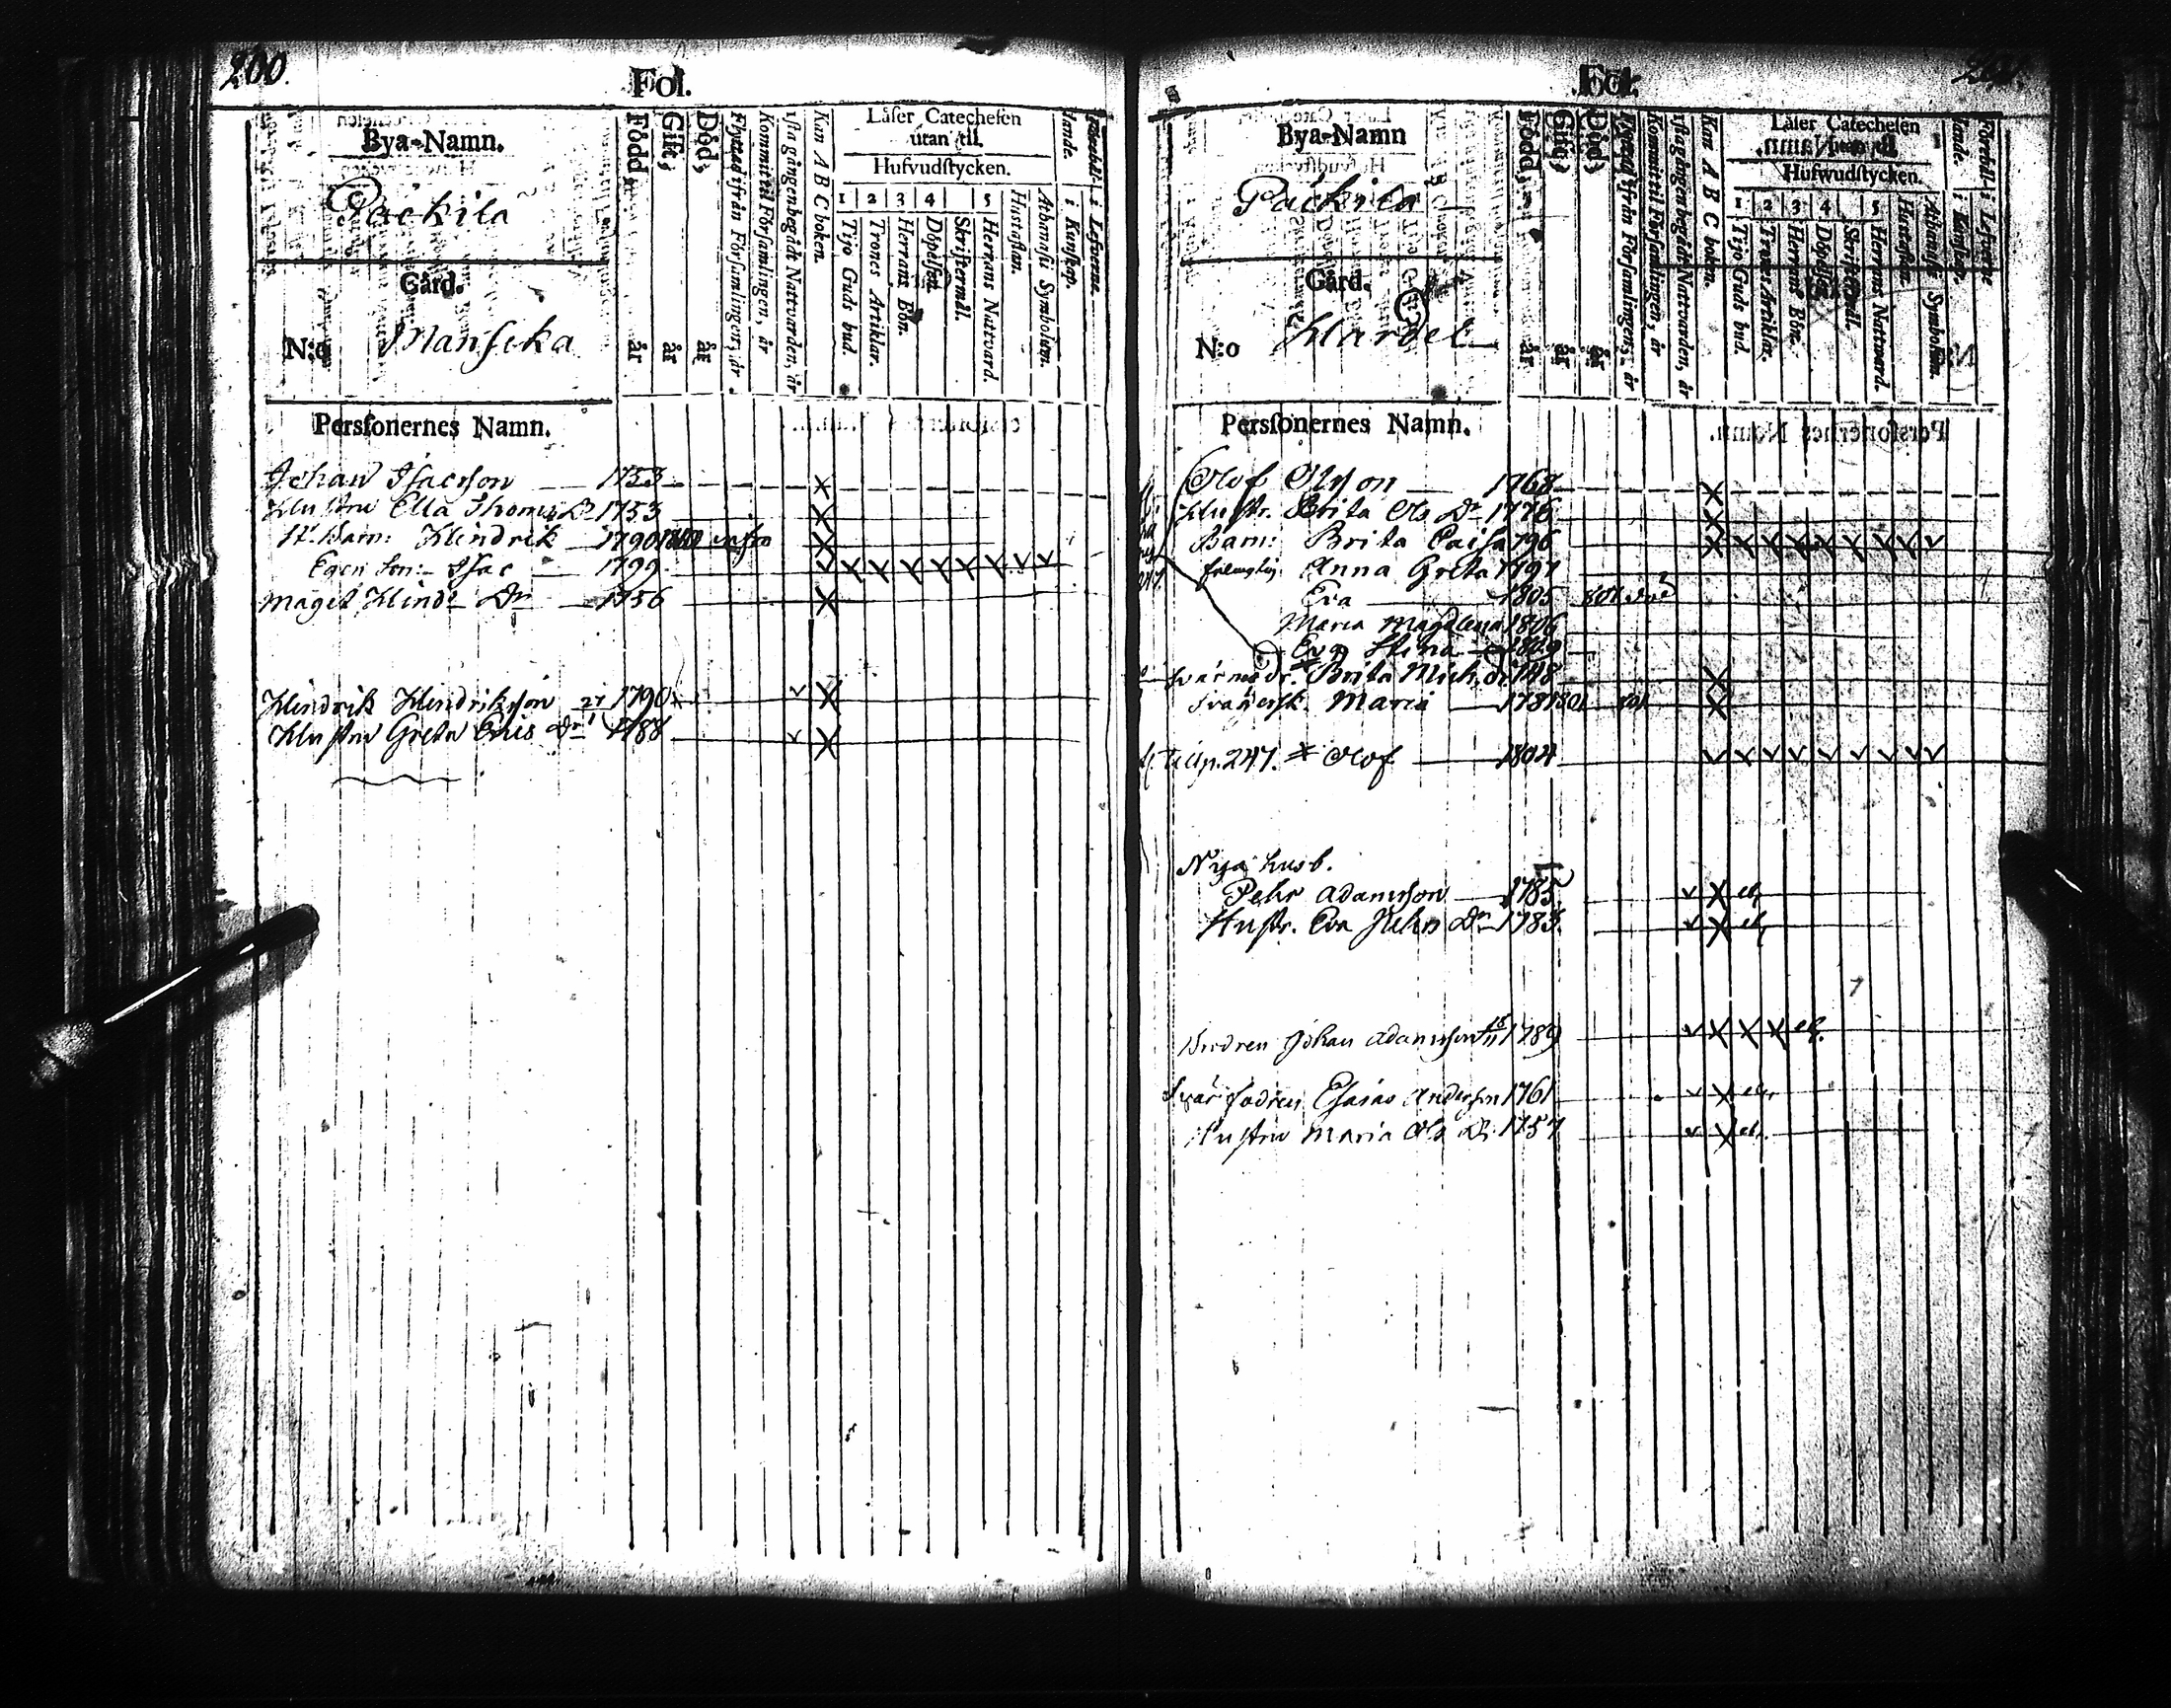 200.
Fol.
Bya-Namn.
Päckilä
Gård.
N:o Mansika
Född, år
Gift, år
Död, år
Flyttad ifrån Församlingen, år
Kommit til Församlingen, år
Kan A B C boken.
Läser Catechesen
utan til.
Hufvudstycken.
1 2 3 4 5
Tijo Guds bud.
Trones Artiklar.
Herrans Bön.
Döpelsen
Skriftermål.
Herrans Nattvard.
Hustaflan.
Athanasii Symbolum.
i Kunskap.
i Lefverne
Perssonernes Namn.
Johan Isacsson 1753
Hustru Ella Thomæ Dr 1753
Hindrik 1790
Egen Son: Isac 1799
Magit Hind: Dr 1756
Hindrik Hindriksson 1790
Hustru Greta Dr 1788
Fol.
Bya-Namn
Päckilä
Gård.
N:o Hardel
Född, år
Gift, år
Död, år
Församlingen, år
Kommit til Församlingen, år
Kan A B C boken.
Läser Catechesen
utan til.
Hufwudstycken.
1 2 3 4 5
Tijo Guds bud.
Trones Artiklar.
Herrans Bön.
Döpelsen
Herrans Nattward.
Hustaflan.
Athanasii Symbolum.
i Kunskap.
i Lefverne
Perssonernes Namn.
Olof Olsson 1768
Hustr. Brita Ols Dr 1776
Barn: Brita Caisa 796
Anna Greta 1797
Eva 1805
Maria Magdalena 1806
Eva Stina 1809
Brita Mich. dr 1748
Maria 1781
247. * Olof 1804
Nya husb.
Pehr Adamsson 1785
Hustr. Eva Johns Dr 1783
Brodren Johan Adamsson 1789
Svärfadren Esaias Andersson 1761
Hustru Maria Ols Dr 1757